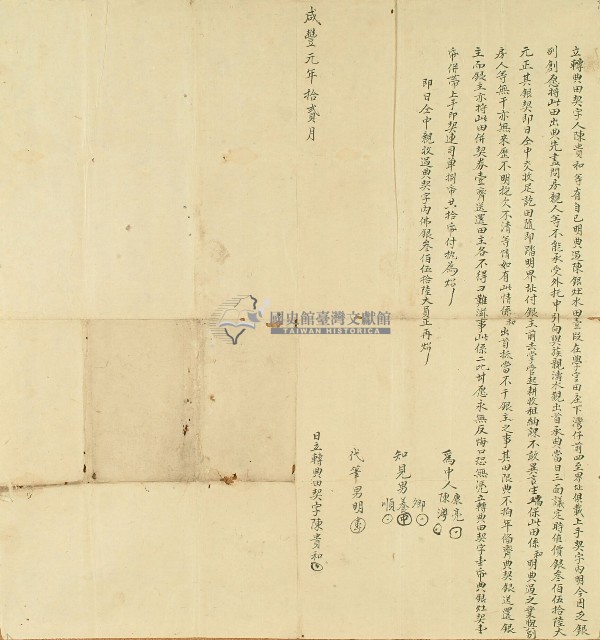 立轉典田契字人陳貴和等有自己明典過陳銀灶水田壹段在學官田庄下灣仔前四至界址俱載上手契字內明今因乏銀
別創愿將此田出典先盡問房親人等不能承受外托中引向與族親濤水觀出首承典當日三面議定時值價銀叁佰伍拾陸大
元正其銀契即日仝中交收足訖田隨即踏明界址付銀主前去掌管起耕收租納課不敢異言生端保此田係和明典過之業與
房人等無干亦無來歷不明拖欠不清等情如有此情係和出首抵當不干銀主之事其田限典不拘年備齊典契銀送還銀
主而銀主亦將此田併契券壹齊送還田主各不得刁難滋事此係二比甘愿永無反悔口恐無憑立轉典田契字壹帋典銀灶契壹
帋併帶上手印契連司單捌帋共拾帋付執為炤
即日仝中親收過典契字內佛銀叁佰伍拾陸大員正再炤
為中人 康亮
陳灣
知見男 鄉
養
順
代筆男明
日立轉典田契字陳貴和
咸豐元年拾貳月
國史館臺灣文獻館
TAIWAN HISTORICA